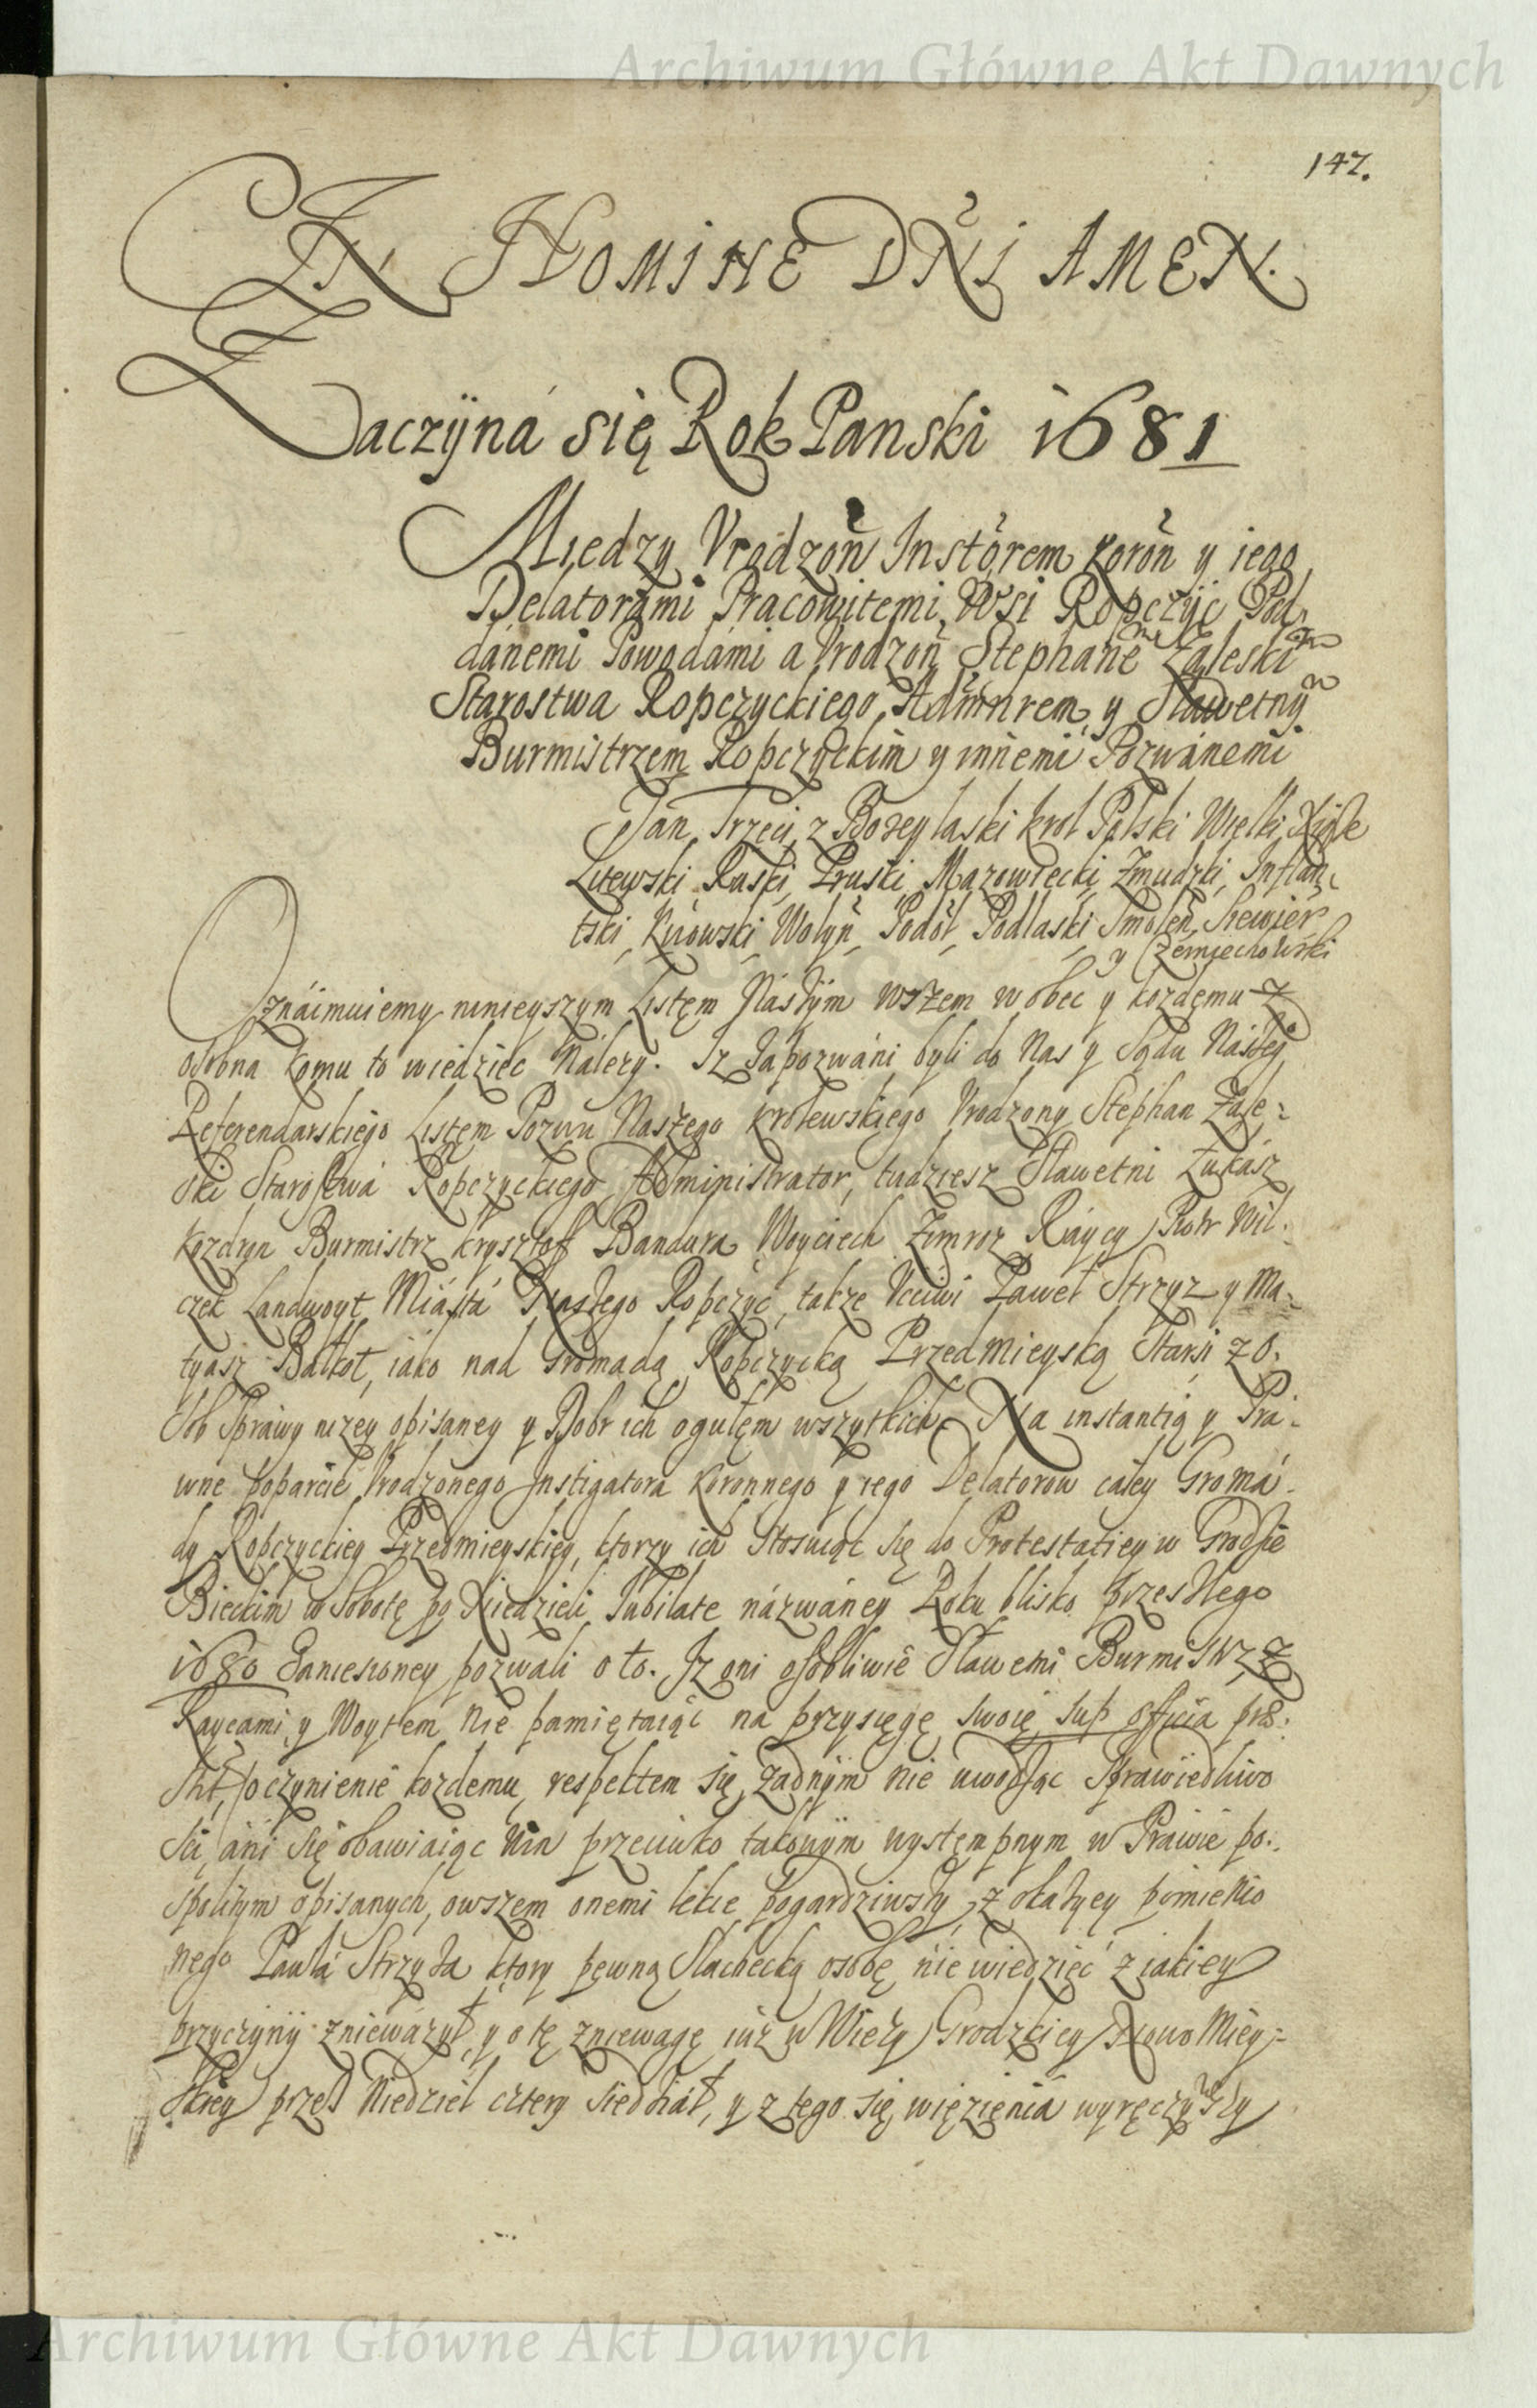 Archiwum Główne Akt Dawnych
147.
IN NOMINE DÑI AMEN.
Zaczÿna się Rok Panski 1681
Między Vrodzoñ Instõrem koroñ y iego
Delatorámi Pracowitemi Wsi Ropczÿc Pod
dánemi Powodámi a Vrodzoñ Stephanẽ Záleskim
Starostwa Ropczyckiego Admñrem y Sławetnÿm
Burmistrzem Ropczyckim y innemi Pozwánemi
Jan Trzeci z Bozey łaski krol Polski Wielki Xiąże
Litewski, Ruski, Pruski, Mazowiecki, Zmudzki, Inflan
tski, Kiiowski, Wołyñ, Podõl, Podlaski, Smoleñ, Siewier
y Czerniechowski
Oznáimuiemy ninieyszym Listęm Nászÿm wszem wobec y kozdęmu z
osobna komu to wiedziec nálezy. Iz Zapozwáni byli do Nas y Sądu Nászeg
Referendarskiego Listęm Pozwu Naszego krolewskiego Vrodzony Stephan Zale:
ski Starostwá Ropczyckiego Administrator, tudziesz Sławetni Łukász
Kozdryn Burmistrz Krysztoff Bandura Woyciech Zimroz Ráycy Piotr Wil:
czek Landwoyt Miástá Naszego Ropczyc, takze Vcciwi Paweł Strzyz y Ma:
tyasz Batkot, iáko nad Gromadą Ropczycką Przedmieyską Starsi z o:
sob Sprawy nizey opisaney y Dobr ich ogułęm wszytkich. Na instantią y Prá:
wne poparcie Vrodzonego Instigatora koronnego y iego Delatorow całey Gromá:
dy Ropczyckiey Przedmieyskiey, ktorzy ich Stosuiąc się do Protestatiey w Grodzie
Bieckim w Sobotę po Niedzieli Jubilate názwáney Roku blisko przeszłego
1680 Zaniesioney pozwali o to. Iz oni osobliwie Sławetni Burmistrz z
Raycami y Woytem nie pamiętaiąc na przysięgę swoię sup officia præ:
stit, poczynienie kozdemu, respektem się zadnÿm nie uwodząc Sprawiedliwo
sci, áni się obawiaiąc win przeciwko takowÿm występnym w Práwie po:
spolitÿm opisanych, owszem onemi lekce pogardziwszy, z okazyey pomienio
nego Pawłá Strzyza ktory pewną Slachecką osobę niewiedziec z iakiey
przyczyny zniewazył, y o tę zniewagę iuz w Wiezy Grodzkiey Nowo Miey:
skiey przez Niedziel cztery Siedział, y z tego się więzienia wyręczywszy
Archiwum Główne Akt Dawnych